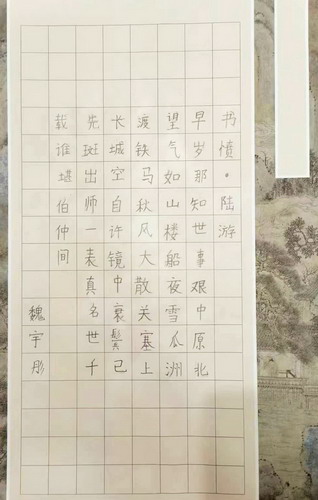 书愤·陆游
早岁那知世事艰中原北
望气如山楼船夜雪瓜洲
渡铁马秋风大散关塞上
长城空自许镜中衰鬓已
先斑出师一表真名世千
载谁堪伯仲间
魏宇彤